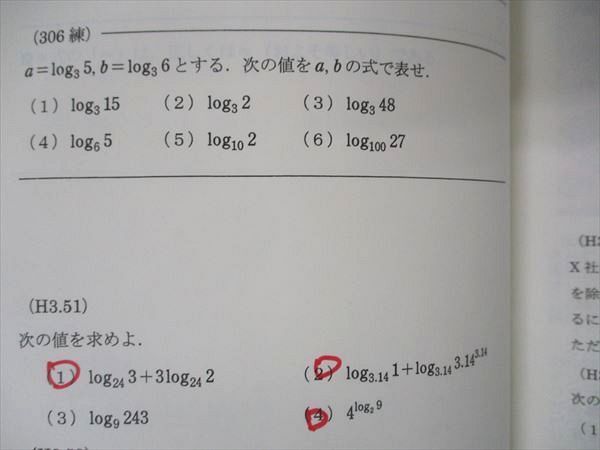 (306 練)
a=log₃5, b=log₃6とする．次の値をa, bの式で表せ．
(1) log₃15 (2) log₃2 (3) log₃48
(4) log₆5 (5) log₁₀2 (6) log₁₀₀27
(H3.51)
次の値を求めよ．
(1) log₂₄3+3log₂₄2 (2) log₃.₁₄1+log₃.₁₄3.14^3.14
(3) log₉243 (4) 4^log₂9
X社
を除
るに
ただ
(H
次の
(1